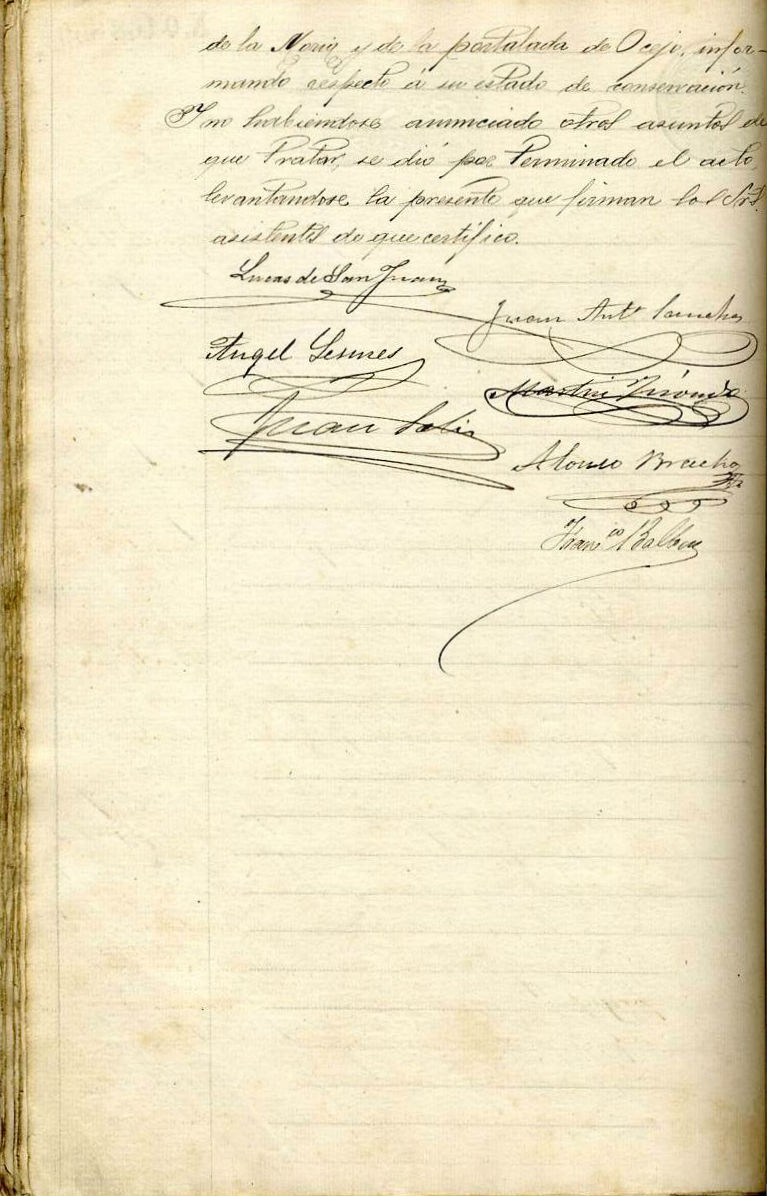 de la Noria y de la portalada de Ocejo, infor-
mando respecto á su estado de conservación.
Y no habiéndose anunciado otros asuntos de
que tratar, se dió por terminado el acto,
levantándose la presente que firman los Srs.
asistentes de que certifico.
Lucas de San Juan
Juan Antº Sanchez
Angel Lesmes
Martin
Juan Solis
Alonso Bracho
Franco Balbon